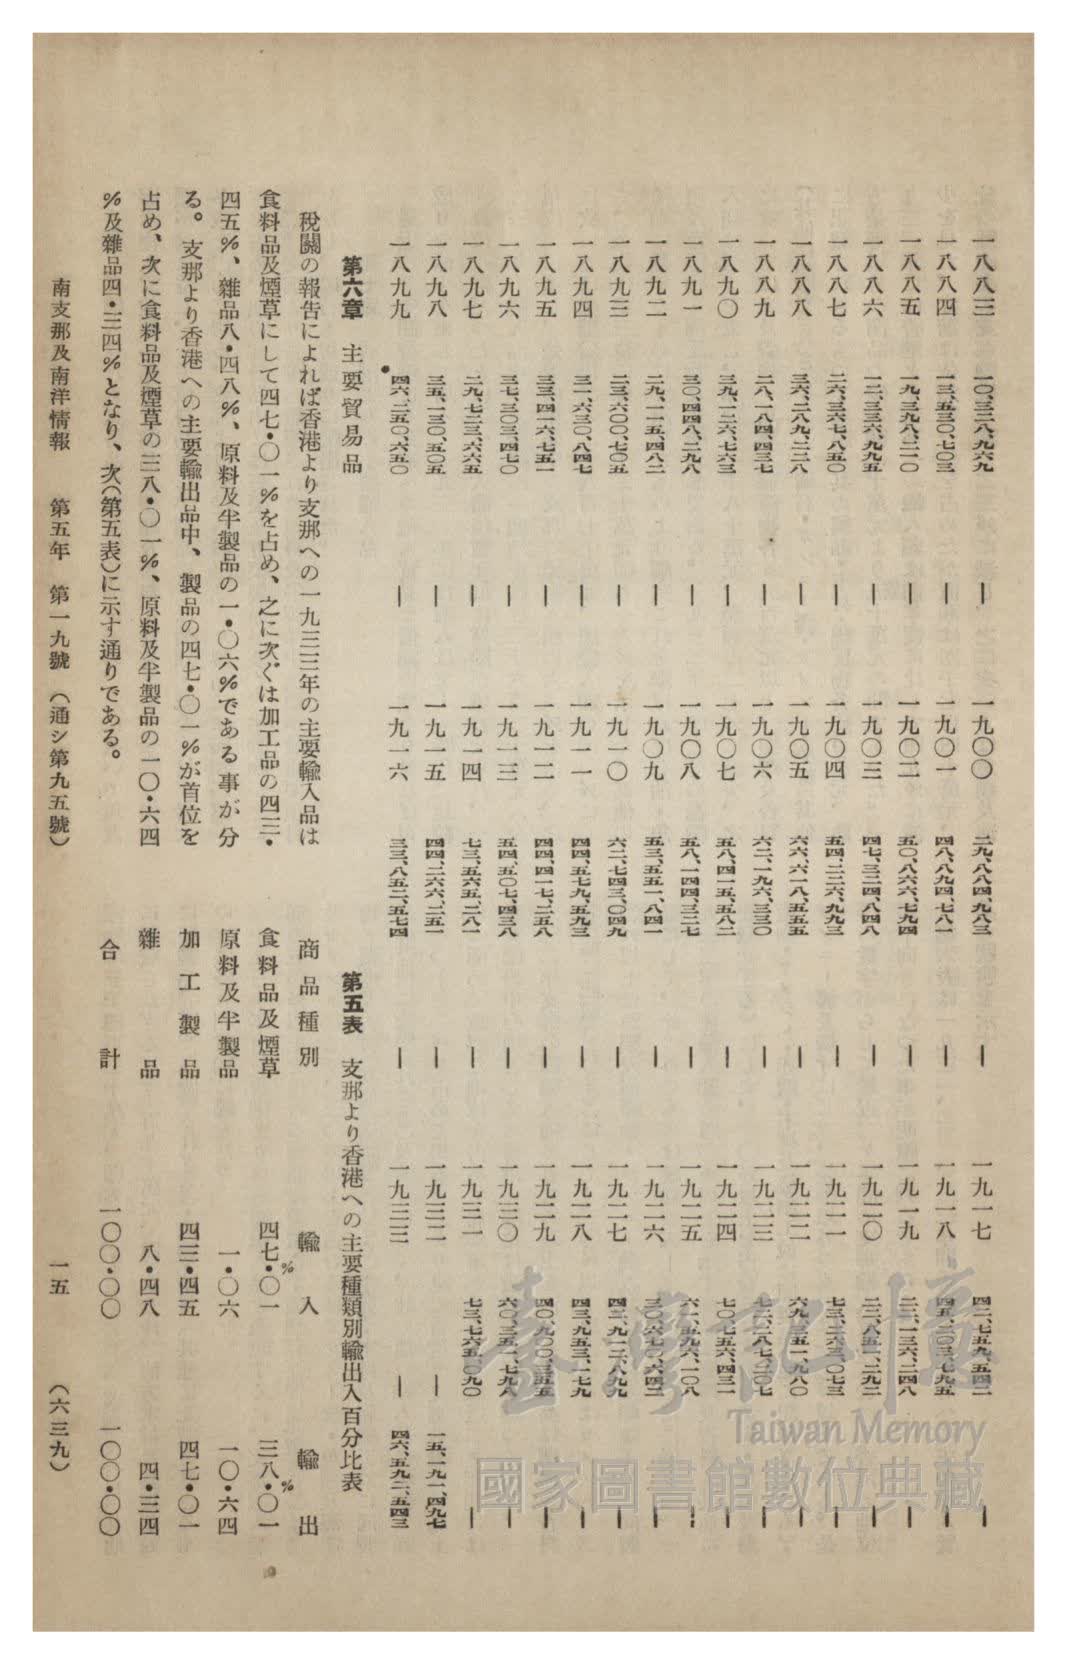 一八八三 一〇、三二八、九六九 ー 一九〇〇 二九、八八四、九八三 ー 一九一七 四二、七五九、五四二 ー
一八八四 一三、五三〇、七〇三 ー 一九〇一 四八、八九四、七八一 ー 一九一八 四五、二〇三、七九五 ー
一八八五 一九、三九八、二一〇 ー 一九〇二 五〇、八六六、七九四 ー 一九一九 二二、一三六、二四八 ー
一八八六 一二、三三六、九九五 ー 一九〇三 四七、三二四、八四八 ー 一九二〇 二二、八五一、二九二 ー
一八八七 二六、三六七、八五〇 ー 一九〇四 五四、二二六、九九三 ー 一九二一 七三、二六三、〇七三 ー
一八八八 三六、二八九、二二八 ー 一九〇五 六六、六一八、五五五 ー 一九二二 六九、三五一、九八〇 ー
一八八九 二八、一八四、四三七 ー 一九〇六 六二、一九六、三三〇 ー 一九二三 七二、二八七、二〇七 ー
一八九〇 三九、一二六、七六三 ー 一九〇七 五八、四一五、五八二 ー 一九二四 七〇、七五六、四三一 ー
一八九一 三〇、四四八、二九八 ー 一九〇八 五八、一四四、三二七 ー 一九二五 六二、五九六、一〇八 ー
一八九二 二九、一一五、四八二 ー 一九〇九 五三、五五一、八四一 ー 一九二六 三〇、六七〇、六四二 ー
一八九三 二三、六〇〇、七〇五 ー 一九一〇 六二、七四三、〇四九 ー 一九二七 四二、九一二、八九九 ー
一八九四 三一、六三〇、八四七 ー 一九一一 四四、五七九、五九三 ー 一九二八 四三、九五三、一七九 ー
一八九五 三三、四一六、七五一 ー 一九一二 四四、四一七、二五八 ー 一九二九 四〇、九〇〇、三五五 ー
一八九六 三七、三〇三、四七〇 ー 一九一三 五四、五〇七、四三八 ー 一九三〇 六〇、三五一、七九八 ー
一八九七 二九、七二三、六六五 ー 一九一四 七三、五六五、二八一 ー 一九三一 七三、七六五、〇九〇 ー
一八九八 三五、一三〇、五〇五 ー 一九一五 四四、二六六、二五一 ー 一九三二 ー 一五、一九一、四九七
一八九九 四六、二五〇、六五〇 ー 一九一六 三三、八五二、五七四 ー 一九三三 ー 四六、五九二、五四三
第六章 主要貿易品
税關の報告によれば香港より支那への一九三三年の主要輸入品は
食料品及煙草にして四七・〇一%を占め、之に次ぐは加工品の四三・
四五%、雜品八・四八%、原料及半製品の一・〇六%である事が分
る。支那より香港への主要輸出品中、製品の四七・〇一%が首位を
占め、次に食料品及煙草の三八・〇一%、原料及半製品の一〇・六四
%及雜品四・三四%となり、次(第五表)に示す通りである。
第五表 支那より香港への主要種類別輸出入百分比表
商品種別 輸入 輸出
食料品及煙草 四七・〇一% 三八・〇一%
原料及半製品 一・〇六 一〇・六四
加工製品 四三・四五 四七・〇一
雜品 八・四八 四・三四
合計 一〇〇・〇〇 一〇〇・〇〇
南支那及南洋情報 第五年 第一九號 (通シ第九五號) 一五 (六三九)
臺灣記憶
Taiwan Memory
國家圖書館數位典藏